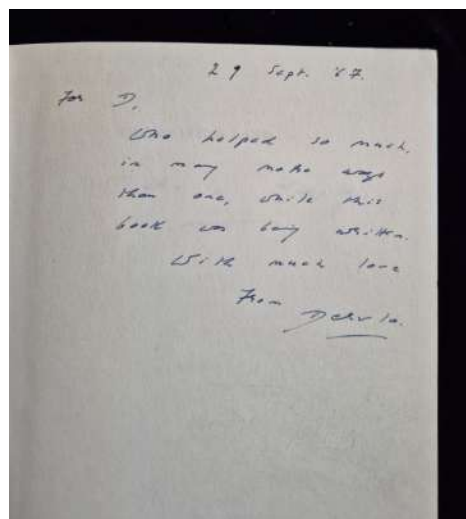 29 Sept. '67.
For D.
Who helped so much,
in many more ways
than one, while this
book was being written.
With much love
From
Dervla.